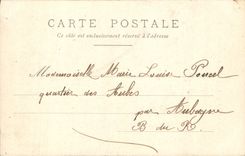 CARTE POSTALE
Ce côté est exclusivement réservé à l'adresse
Mademoiselle Marie Louise Poucel
quartier des Aubes
par Aubagne
B du R.